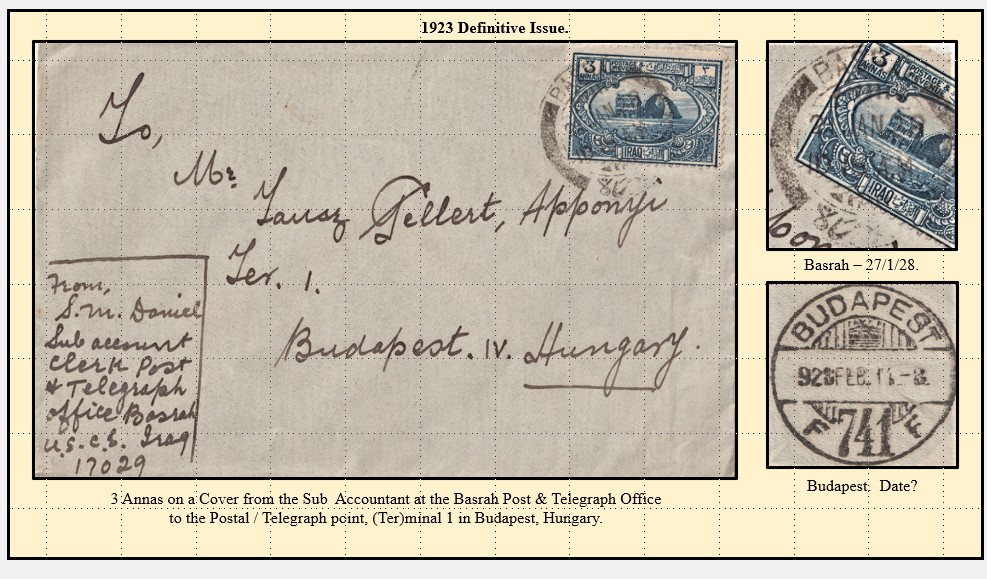 1923 Definitive Issue.
3
ANNAS
POSTAGE &
REVENUE
٣
IRAQ
To,
Mr
Janusz Gellert, Apponyi
Ter. 1.
Budapest. IV. Hungary.
From,
S.M. Daniel
Sub account
Clerk Post
& Telegraph
office Basrah
U.S.C.S. Iraq
17029
3 Annas on a Cover from the Sub Accountant at the Basrah Post & Telegraph Office
to the Postal / Telegraph point, (Ter)minal 1 in Budapest, Hungary.
3
ANNAS
POSTAGE &
REVENUE
IRAQ
Basrah – 27/1/28.
BUDAPEST
928 FEB. 11.
F 741 F
Budapest. Date?